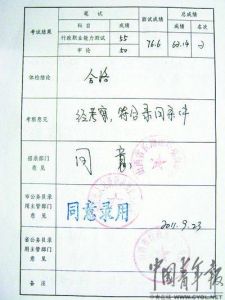 考试结果
笔试
面试成绩
总成绩
科目
成绩
成绩
名次
行政职业能力测试
55
76.6
63.14
2
申论
50
体检结论
合格
考察意见
经考察,符合录用条件
招录部门
意见
同意
市公务员录
用主管部门
意见
同意录用
2011.9.23
省公务员录
用主管部门
意见
备注
中国青年报
中青在线 WWW.CYOL.NET